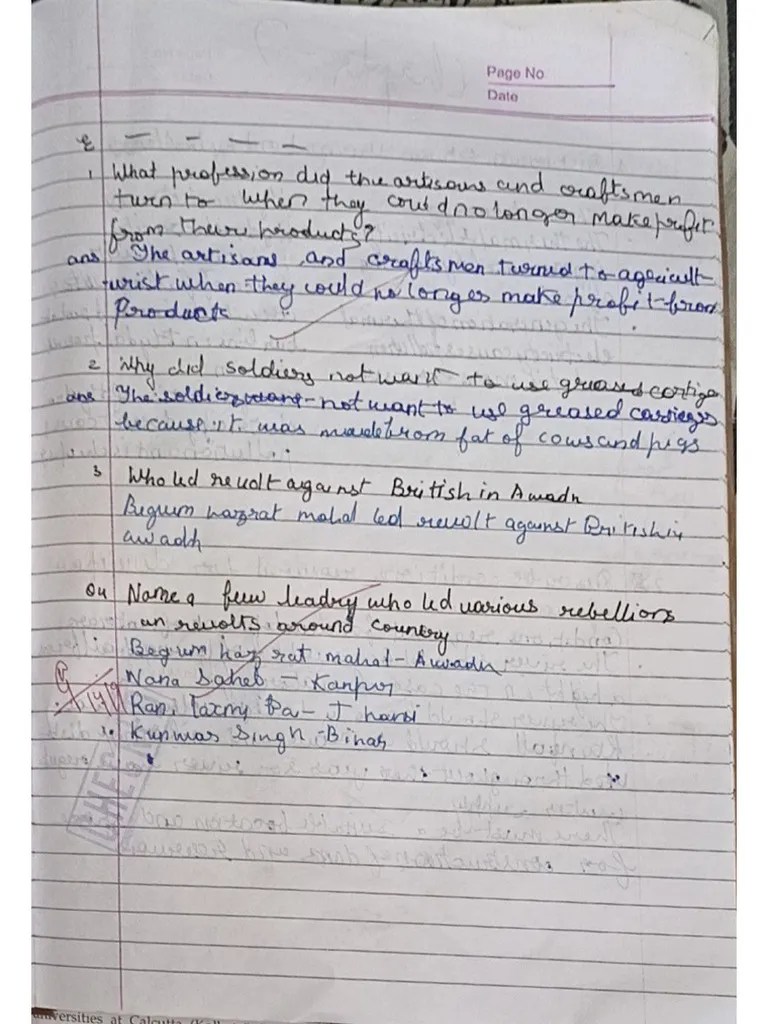 Page No
Date
E
1 What profession did the artisans and craftsmen
turn to when they could no longer make profit
from there products?
ans The artisans and craftsmen turned to agricult-
urist when they could no longer make profit from
Products
2 Why did soldiers not want to use greased
ans The soldiers not want to use greased
because it was made from fat of cows and pigs
3 Who led revolt against British in Awadh
Begum hazrat mahal led revolt against British in
awadh
Q4 Name a few who led various rebellions
an revolts around country
Begum hazrat mahal - Awadh
Nana Saheb - Kanpur
Rani laxmy Ba - Jhansi
Kunwar Singh - Bihar
CHECKED
universities at Calcutta